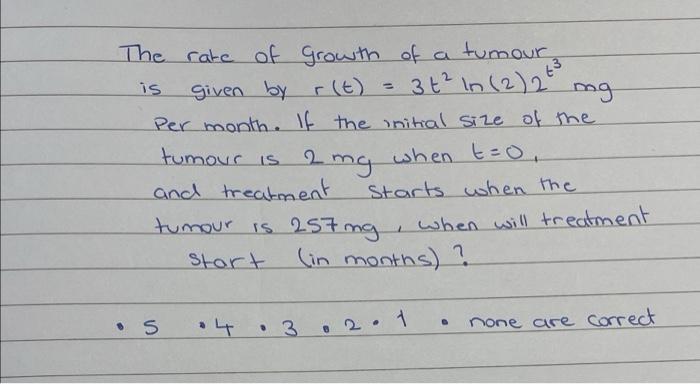 The rate of growth of a tumour
is given by r(t) = 3t² ln(2)2^t³ mg
Per month. If the initial size of the
tumour is 2 mg when t=0,
and treatment starts when the
tumour is 257mg, when will treatment
start (in months)?
• 5 • 4 • 3 • 2 • 1 • none are correct